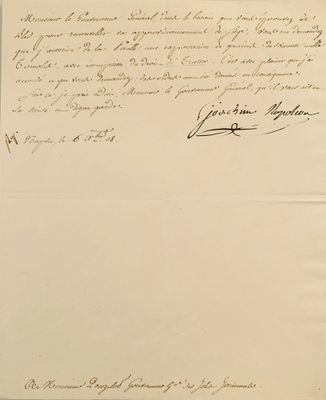 Monsieur le Gouverneur Général, dans le besoin que vous éprouvez de
Bleds pour renouveller les approvisionnemens de siège, vous me demandez
que j'autorise de la Pouille une exportation de quinze de soixante mille
Tomoli, avec exemption du droit de Tratte. C'est avec plaisir que j'ai
accordé ce que vous demandez, des ordres ont été donnés en conséquence.
Sur ce, je prie Dieu, Monsieur le Gouverneur Général, qu'il vous ait en
sa sainte et digne garde.
Joachim Napoléon
Naples, le 6 Xbre 08.
A Monsieur Donzelot Gouverneur Gal des Isles Ioniennes.